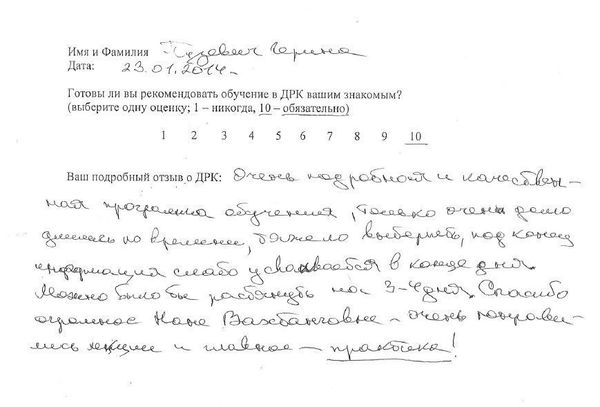 Имя и Фамилия Пузевич Ирина
Дата: 23.01.2014
Готовы ли вы рекомендовать обучение в ДРК вашим знакомым?
(выберите одну оценку; 1 – никогда, 10 – обязательно)
1 2 3 4 5 6 7 8 9 10
Ваш подробный отзыв о ДРК: Очень подробная и качествен-
ная программа обучения, только очень долго
по времени, тяжело выдержать, под конец
информация слабо усваивается в конце дня.
Можно было бы растянуть на 3-4 дня. Спасибо
огромное Нане Вахтанговне – очень понрави-
лись лекции и главное – практика!